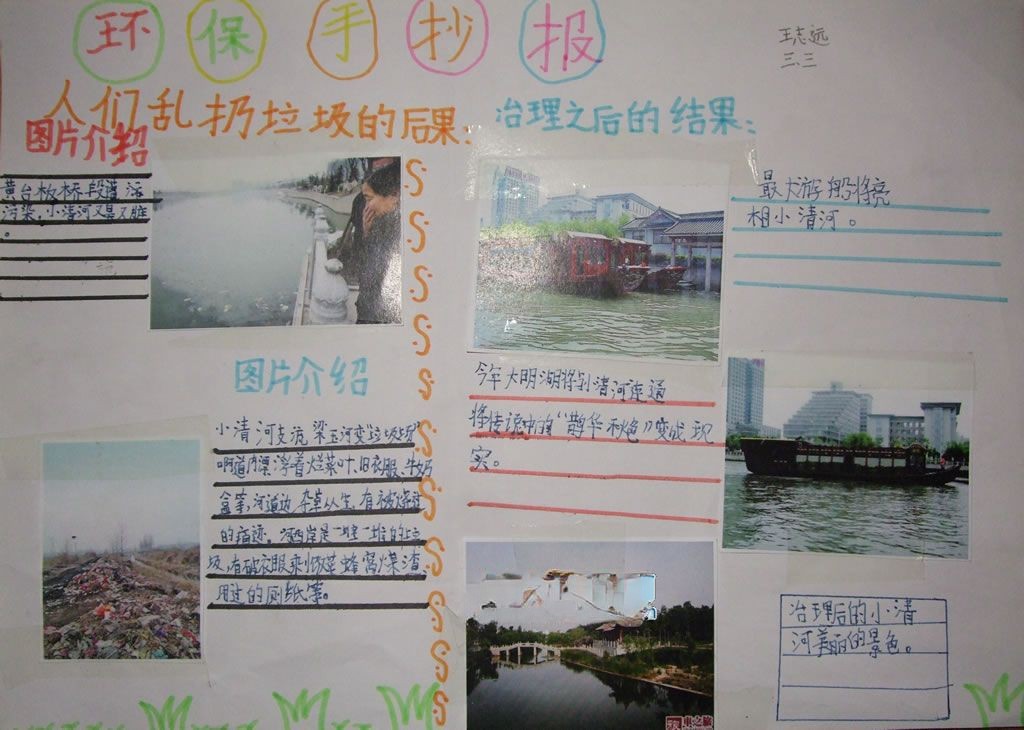 环保手抄报
王志远
三.三
人们乱扔垃圾的后果:
图片介绍
黄台板桥段遭污
污染,小清河又臭又脏
。
图片介绍
小清河支流梁王河变"垃圾场"
河道内漂浮着烂菜叶、旧衣服、牛奶
盒等,河道边杂草丛生,有被烧过
的痕迹。河西岸是一堆一堆的垃
圾,有破衣服剩饭菜蜂窝煤渣
用过的厕纸等。
治理之后的结果:
最大游船将亮
相小清河。
今年大明湖将到清河连通
将传说中的"鹊华秋色"变成现
实。
治理后的小清
河美丽的景色。
車之旅